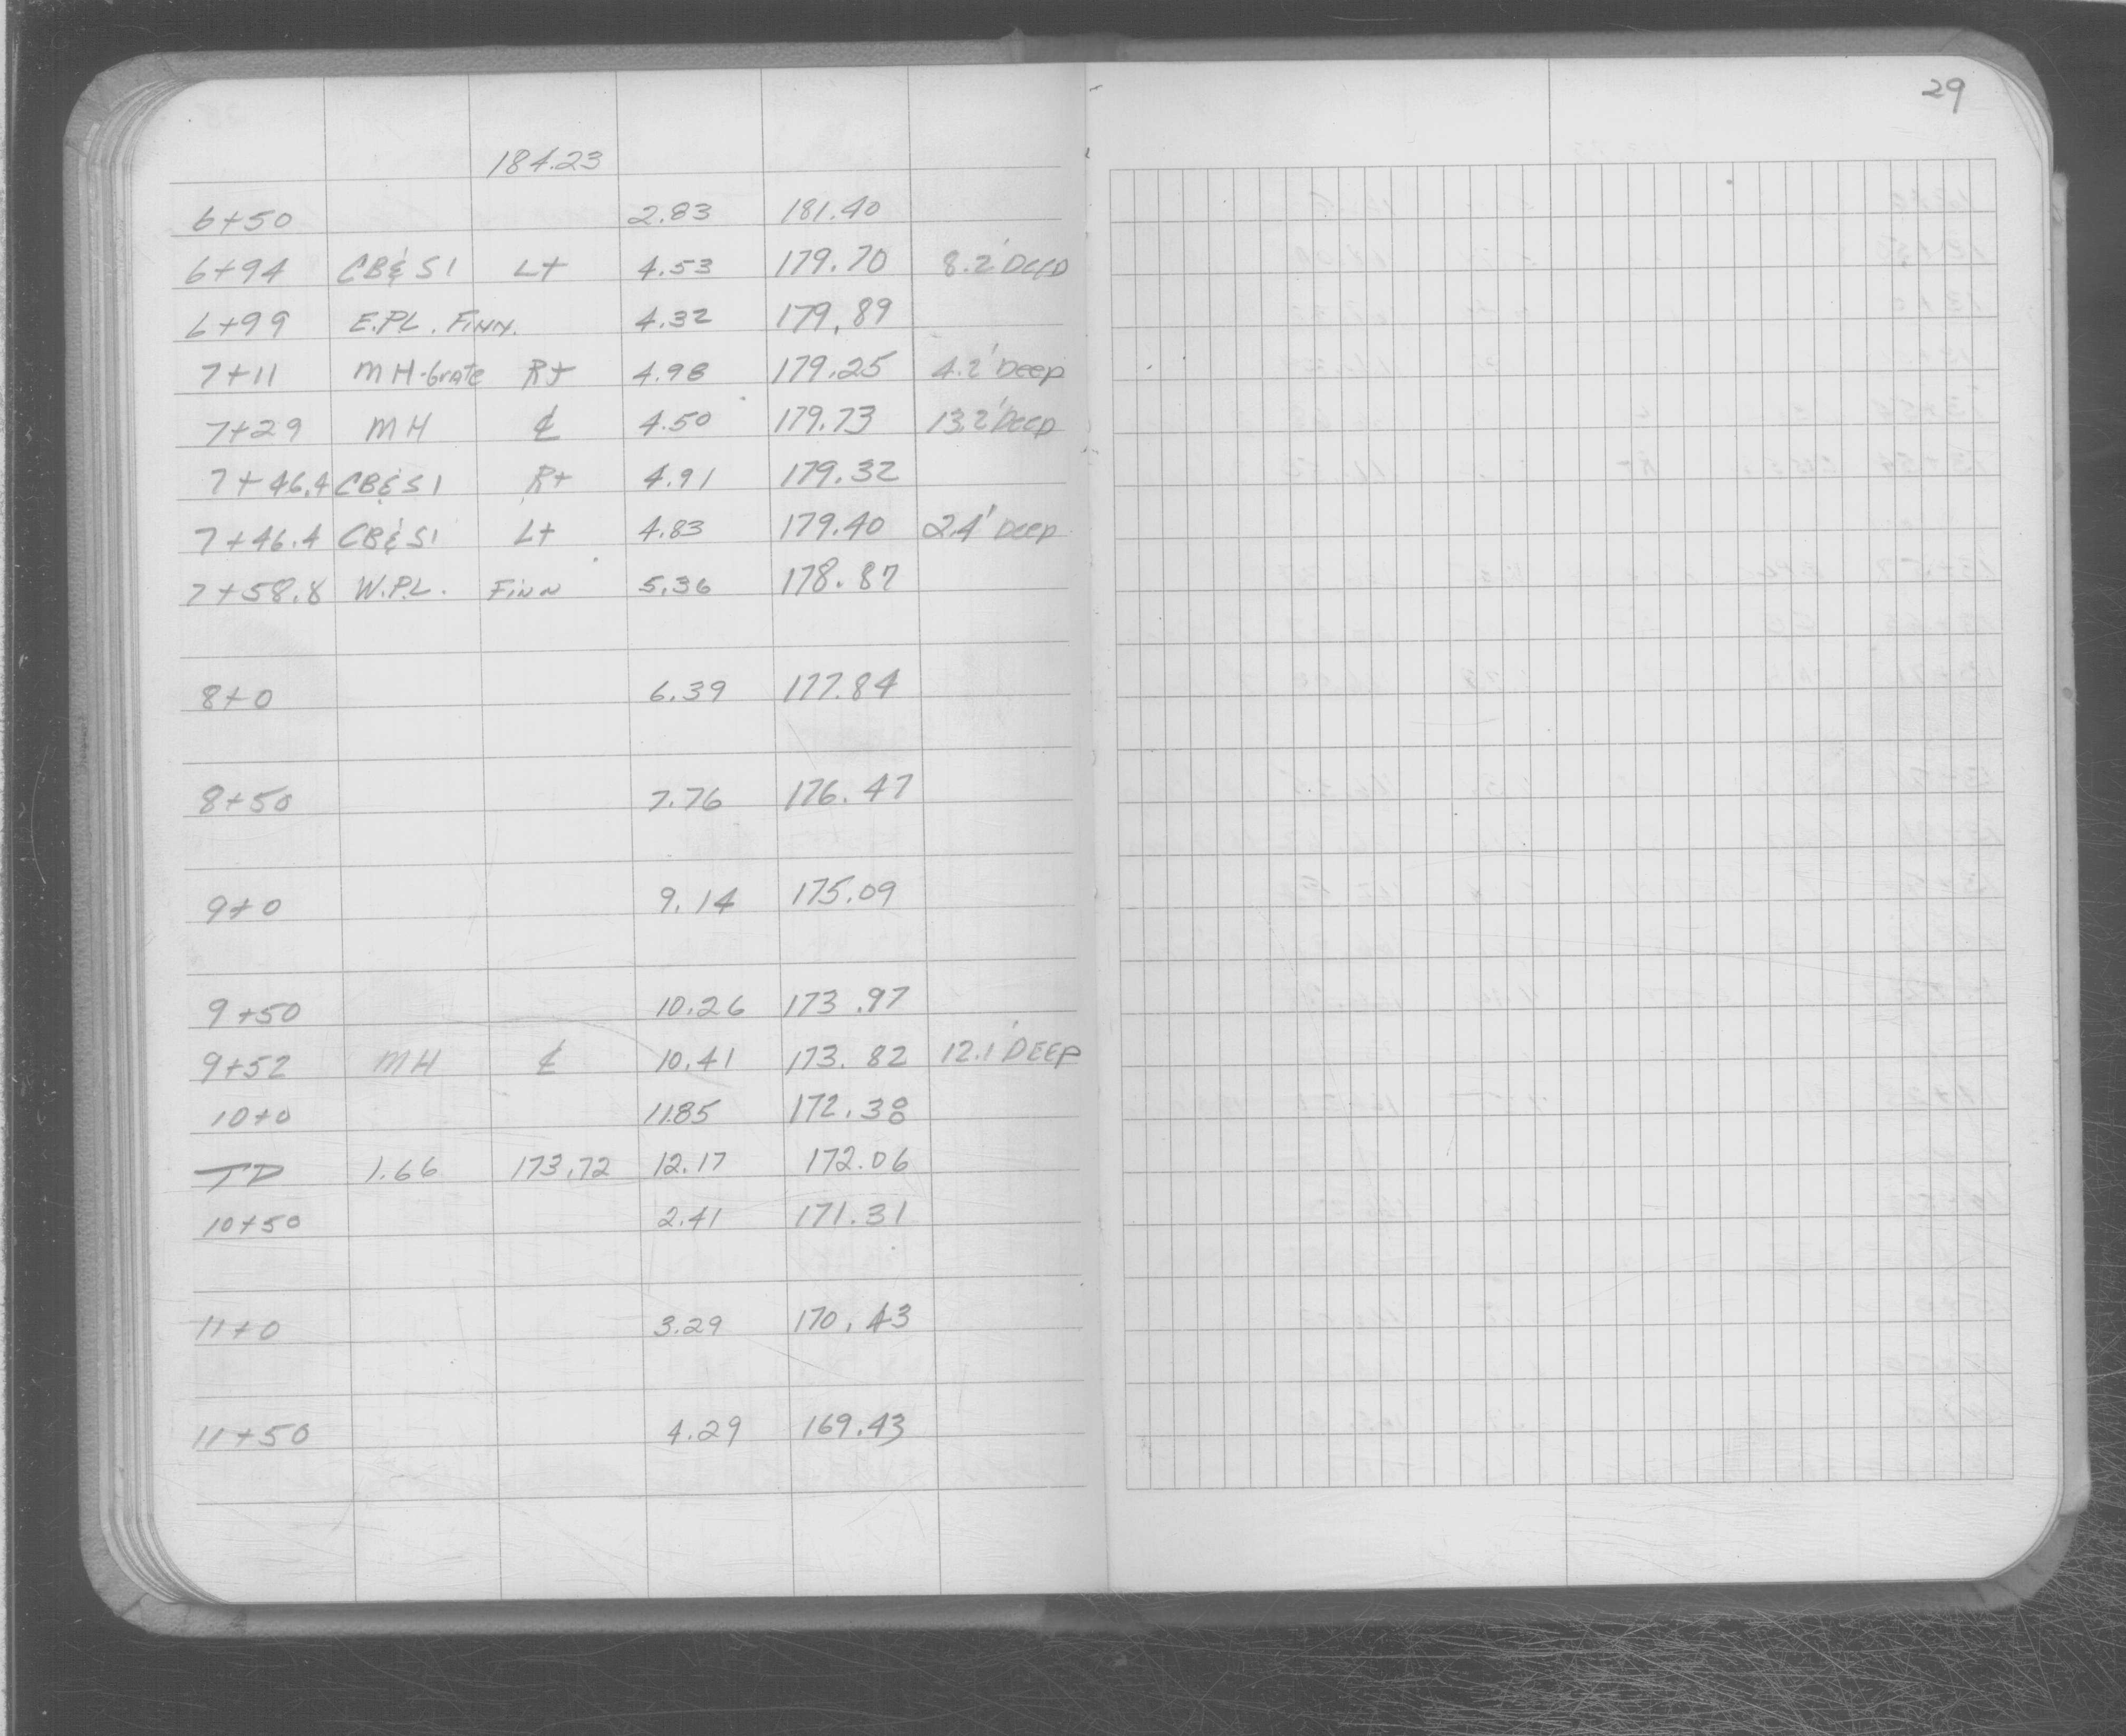 29
184.23
6+50 2.83 181.40
6+94 CB&SI Lt 4.53 179.70 8.2' Deep
6+99 E.PL. Finn. 4.32 179.89
7+11 MH-Grate Rt 4.98 179.25 4.2' Deep
7+29 MH ℄ 4.50 179.73 13.2' Deep
7+46.4 CB&SI Rt 4.91 179.32
7+46.4 CB&SI Lt 4.83 179.40 2.4' Deep
7+58.8 W.P.L. Finn 5.36 178.87
8+0 6.39 177.84
8+50 7.76 176.47
9+0 9.14 175.09
9+50 10.26 173.97
9+52 MH ℄ 10.41 173.82 12.1' DEEP
10+0 11.85 172.38
TP 1.66 173.72 12.17 172.06
10+50 2.41 171.31
11+0 3.29 170.43
11+50 4.29 169.43